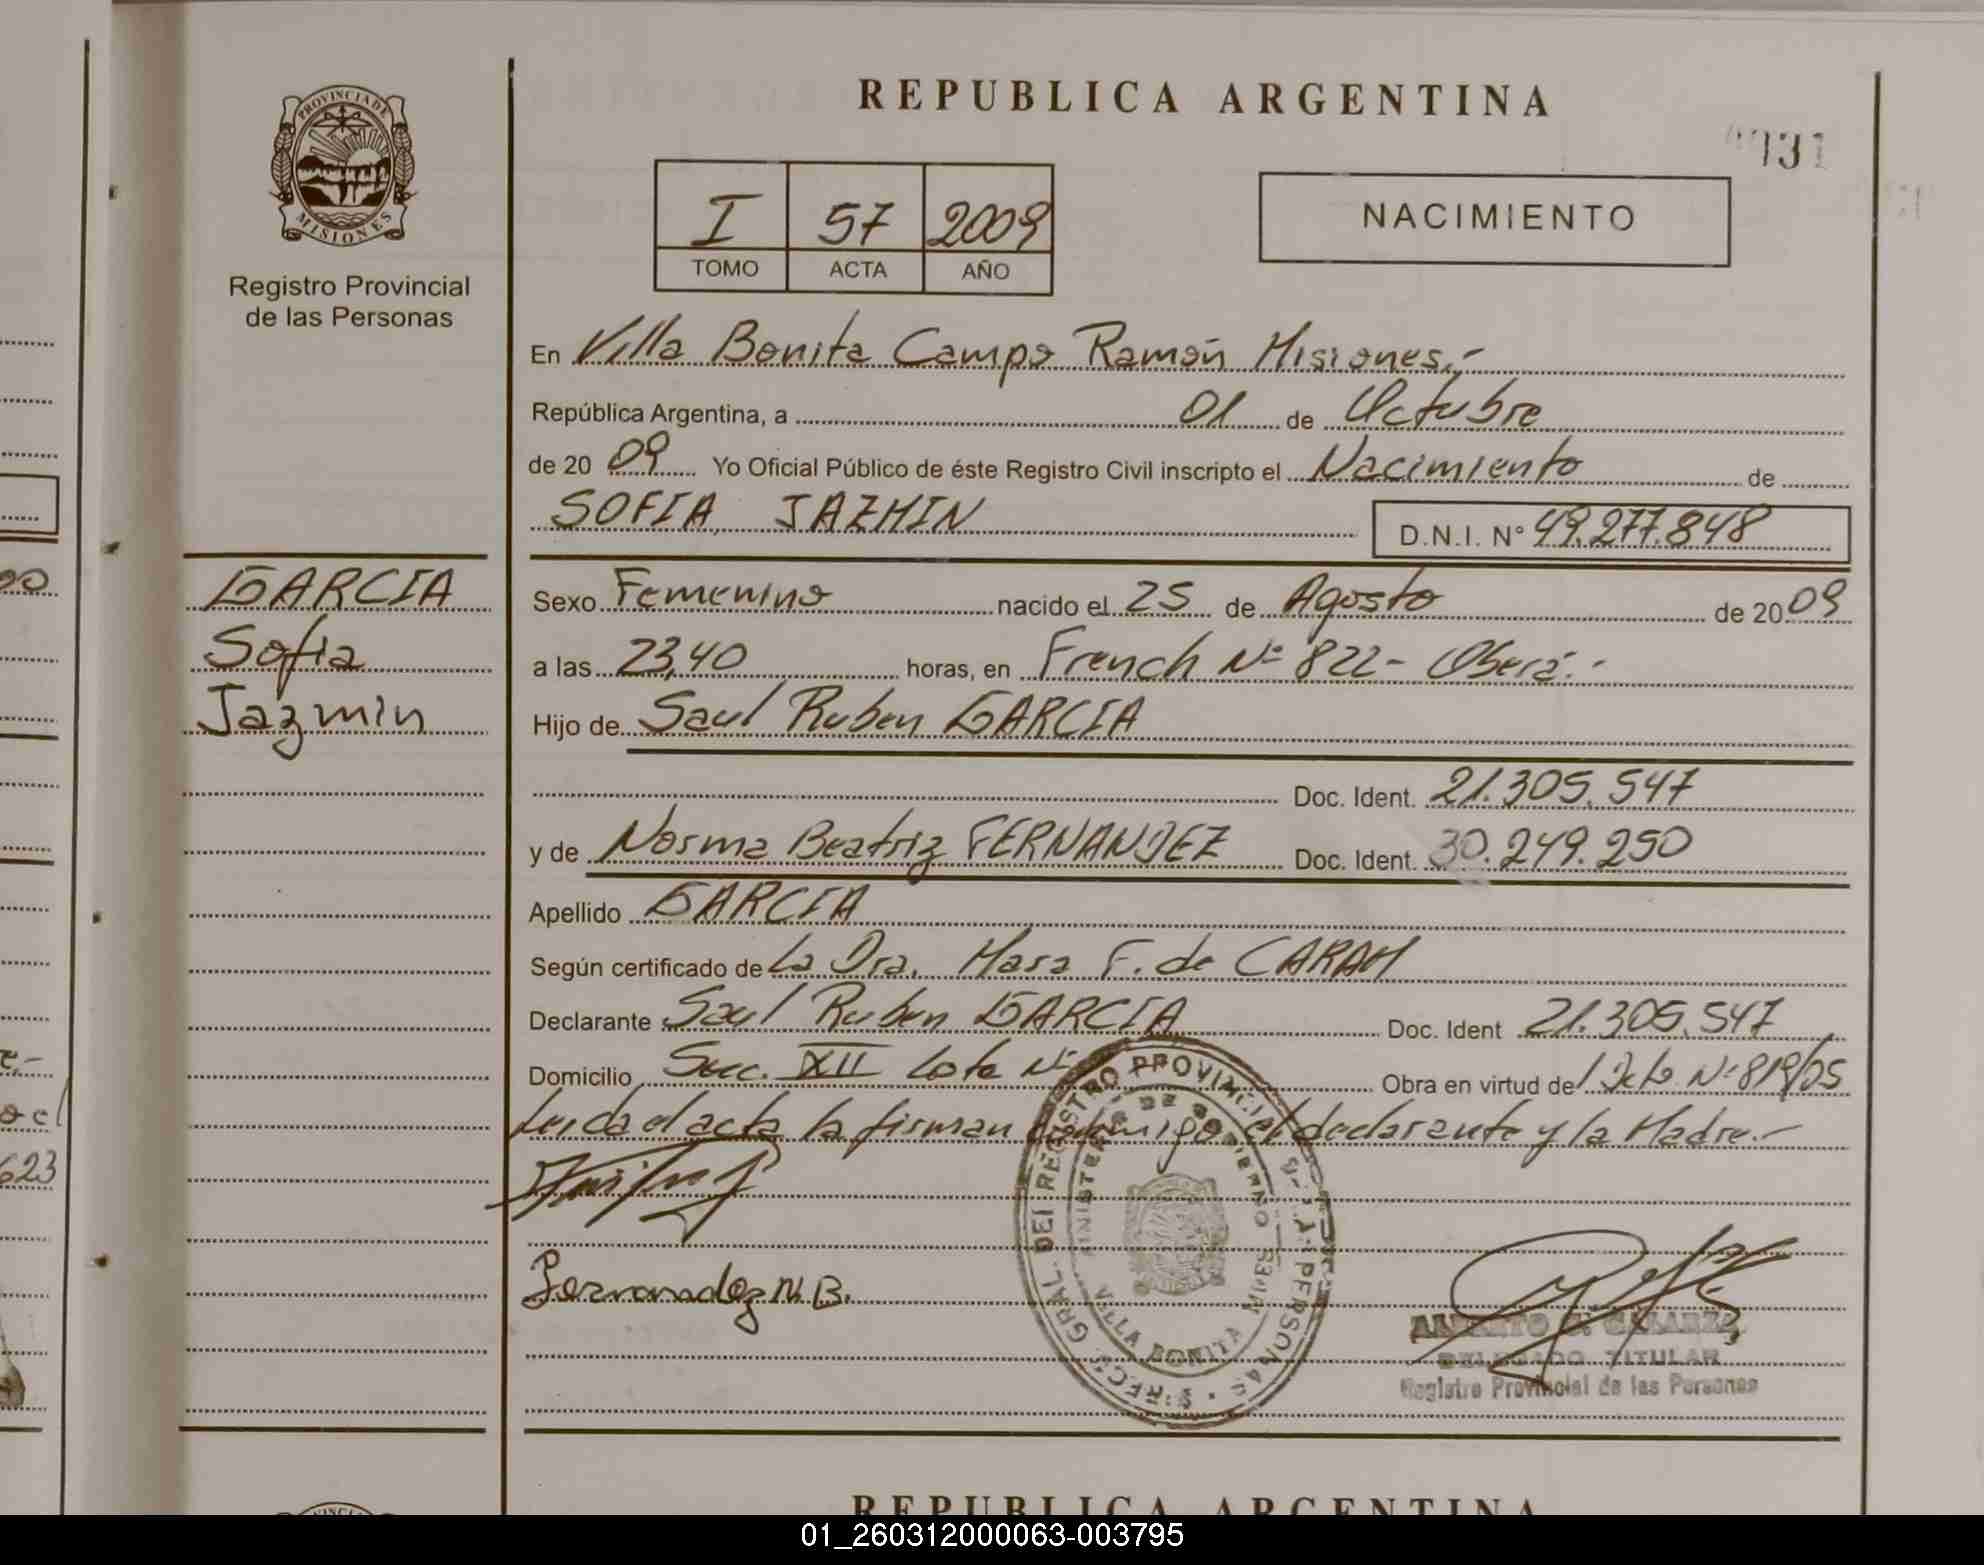 PROVINCIA DE
MISIONES
Registro Provincial
de las Personas
REPUBLICA ARGENTINA
I 57 2009
TOMO ACTA AÑO
NACIMIENTO
En Villa Bonita Campo Ramón Misiones.-
República Argentina, a 01 de Octubre
de 20 09 Yo Oficial Público de éste Registro Civil inscripto el Nacimiento de
SOFIA JAZMIN D.N.I. N° 49.277.848
GARCIA
Sofia
Jazmin
Sexo Femenino nacido el 25 de Agosto de 20 09
a las 23,40 horas, en French Nº 822- Oberá.-
Hijo de Saul Ruben GARCIA
Doc. Ident. 21.305.547
y de Norma Beatriz FERNANDEZ Doc. Ident. 30.249.250
Apellido GARCIA
Según certificado de La Dra. Mara F. de CARAM
Declarante Saul Ruben GARCIA Doc. Ident 21.305.547
Domicilio Secc. XII Lote Nº Obra en virtud de Dcto Nº 819/05
Leida el acta la firman conmigo el declarante y la Madre.-
Fernandez N. B.
DELEGADO TITULAR
Registro Provincial de las Personas
VILLA BONITA
REPUBLICA ARGENTINA
01_260312000063-003795